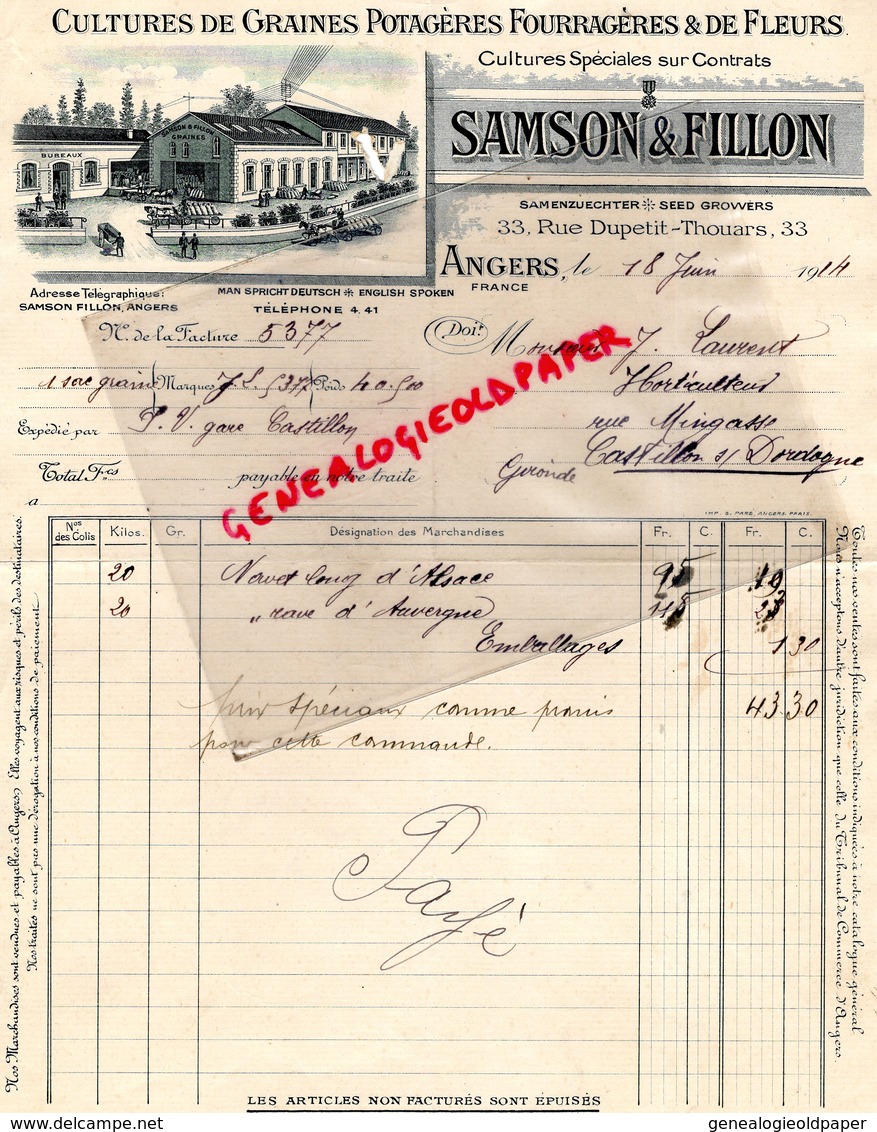 CULTURES DE GRAINES POTAGÈRES FOURRAGÈRES & DE FLEURS
Cultures Spéciales sur Contrats
SAMSON & FILLON
GRAINES
BUREAUX
SAMSON & FILLON
SAMENZUECHTER SEED GROWERS
33, Rue Dupetit-Thouars, 33
ANGERS, le 18 Juin 1914
FRANCE
Adresse Télégraphique:
SAMSON FILLON, ANGERS
MAN SPRICHT DEUTSCH ENGLISH SPOKEN
TÉLÉPHONE 4.41
N. de la Facture 5377
Doit Monsieur J. Laurent
Horticulteur
rue Mingasse
Castillon s/ Dordogne
Gironde
1 sac grain Marques J.L. 5377 Poids 40.500
Expédié par P.V. gare Castillon
Total Fcs payable en notre traite
a
GENEALOGIEOLDPAPER
IMP. G. PARÉ, ANGERS. PRAIS.
Nos des Colis Kilos. Gr. Désignation des Marchandises Fr. C. Fr. C.
20 Navet long d'Alsace 95 19
20 " rave d'Auvergne 115 23
Emballages 1 30
43 30
Prix spéciaux comme promis
pour cette commande.
Payé
Nos Marchandises sont vendues et payables à Angers; Elles voyagent aux risques et périls des destinataires.
Nos traites ne sont pas une dérogation à nos conditions de paiement.
Toutes nos ventes sont faites aux conditions indiquées à notre catalogue général
Nous n'acceptons d'autre juridiction que celle du Tribunal de Commerce d'Angers.
LES ARTICLES NON FACTURÉS SONT ÉPUISÉS
genealogieoldpaper